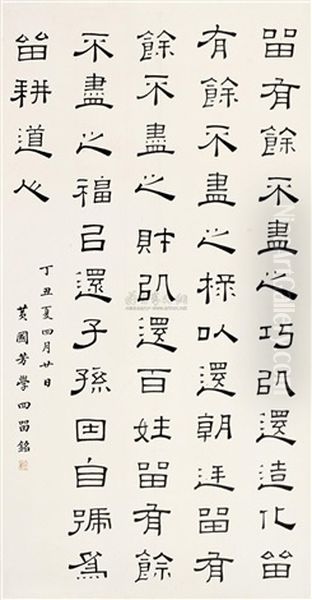 留有餘不盡之巧以還造化留
有餘不盡之祿以還朝廷留有
餘不盡之財以還百姓留有餘
不盡之福以還子孫因自號爲
留耕道人
丁丑夏四月廿日
黃國芳學四留銘